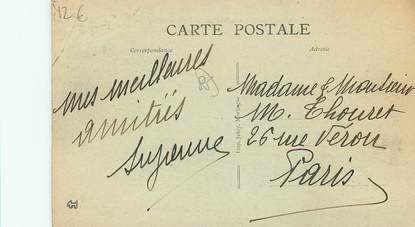 12-6
CARTE POSTALE
Correspondance
Adresse
mes meilleures
amitiés
Suzanne
Madame & Monsieur
M. Thouret
26 rue Véron
Paris